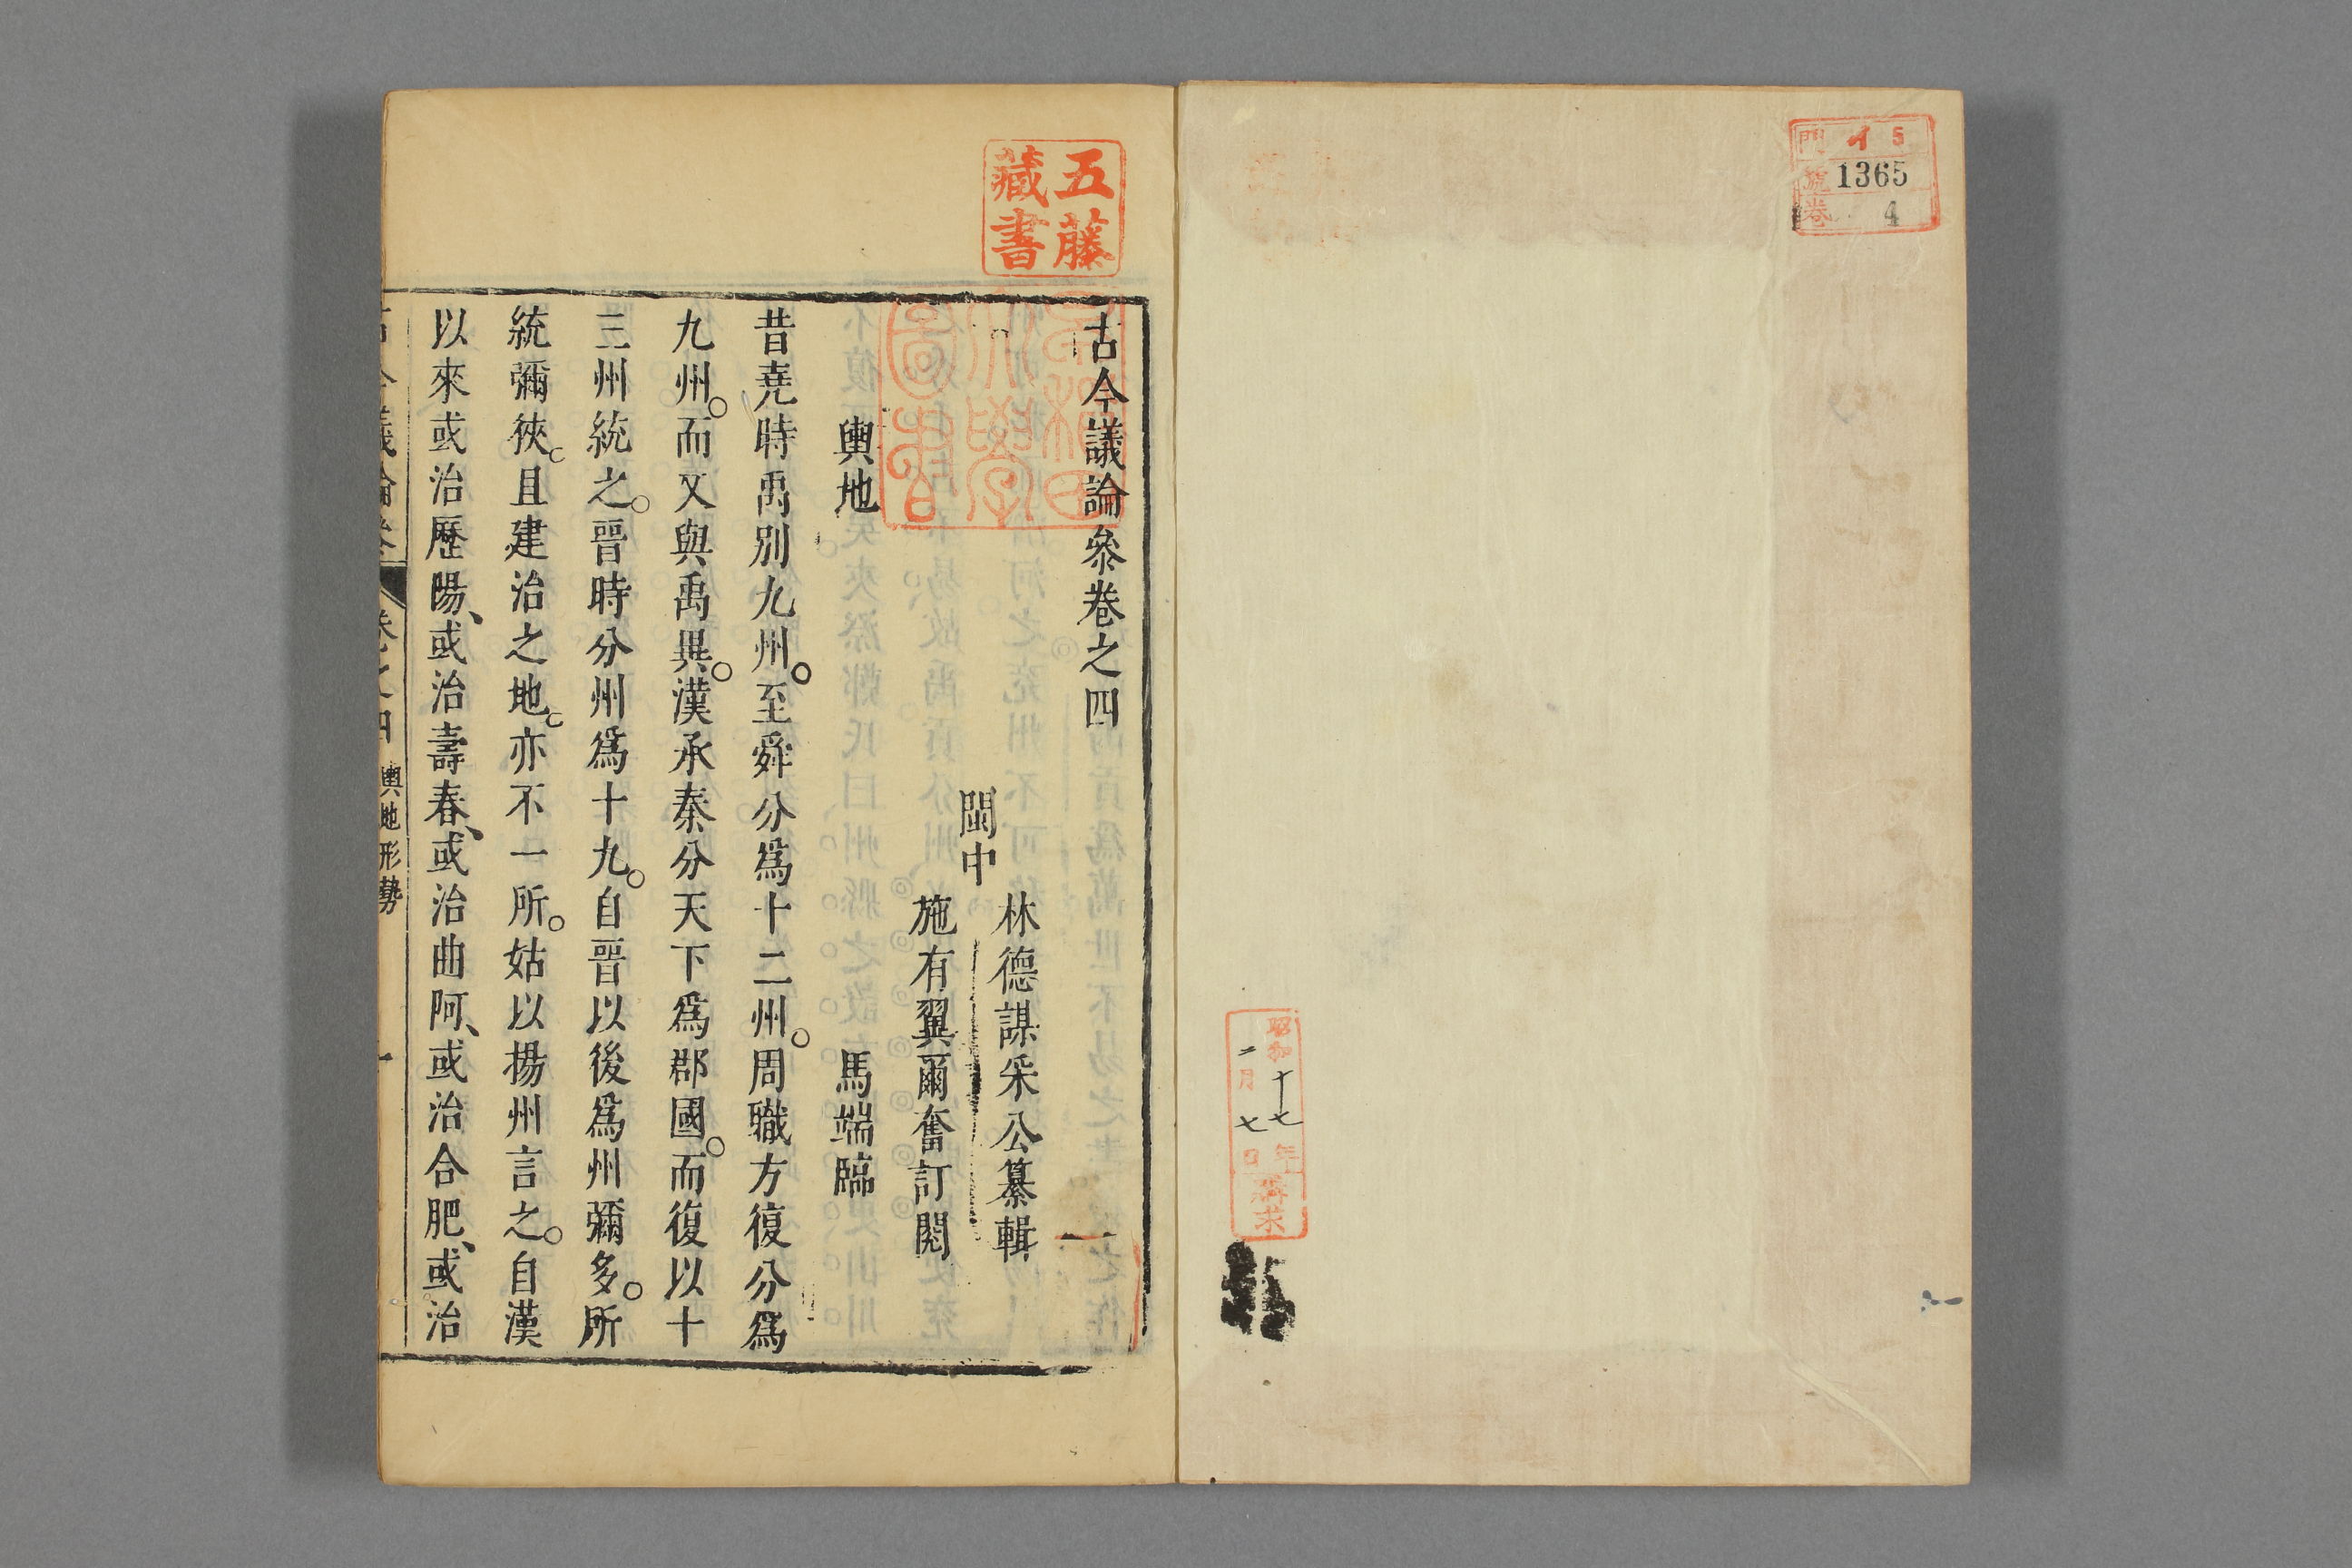 門 イ 5
號 1365
卷 4
昭和十七年
二月七日
購求
五藤
藏書
早稻田
大學
圖書
古今議論叅卷之四
閩中
林德謀采公纂輯
施有翼爾奮訂閱
輿地
馬端臨
昔堯時禹別九州。至舜分爲十二州。周職方復分爲
九州。而又與禹異。漢承秦分天下爲郡國。而復以十
三州統之。晉時分州爲十九。自晉以後爲州彌多。所
統彌狹。且建治之地。亦不一所。姑以揚州言之。自漢
以來或治歷陽、或治壽春、或治曲阿、或治合肥、或治
古今議論叅 卷之四 輿地形勢 一